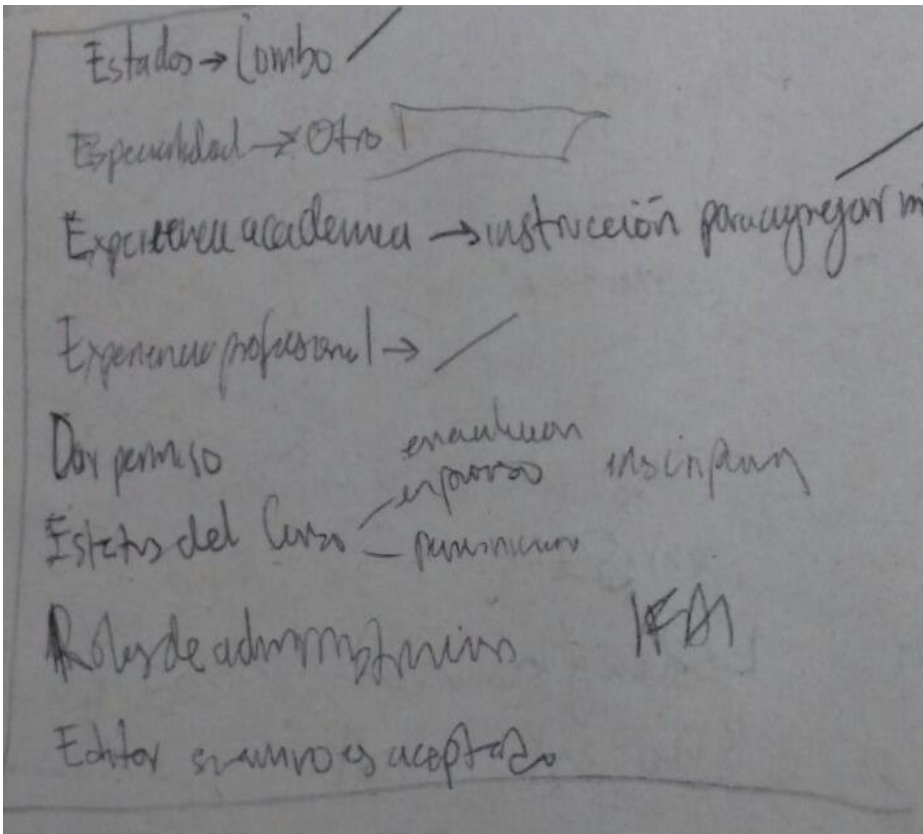 Estados → Combo
Especialidad → Otro
Experiencia academica → instrucción para agregar m
Experiencia profesional →
Dar permiso
en proceso inscripcion
Estatus del Curso
Roles de administracion IFAI
Editar aceptado